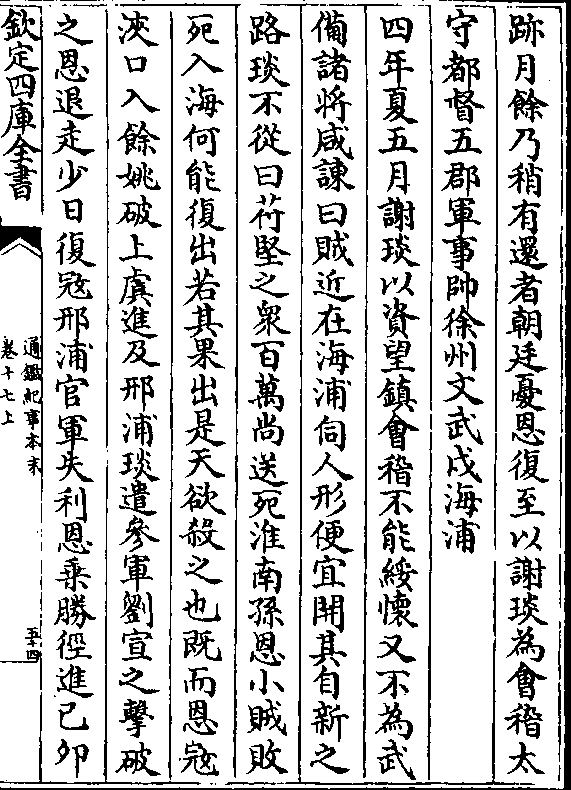 跡月餘乃稍有還者朝廷憂恩復至以謝琰為會稽太
守都督五郡軍事帥徐州文武戍海浦
四年夏五月謝琰以資望鎮會稽不能綏懷又不為武
備諸將咸諫曰賊近在海浦伺人形便宜開其自新之
路琰不從曰苻堅之衆百萬尚送死淮南孫恩小賊敗
死入海何能復出若其果出是天欲殺之也既而恩寇
浹口入餘姚破上虞進及邢浦琰遣參軍劉宣之擊破
之恩退走少日復寇邢浦官軍失利恩乘勝徑進己卯
欽定四庫全書
通鑑紀事本末
卷十七上
五十四